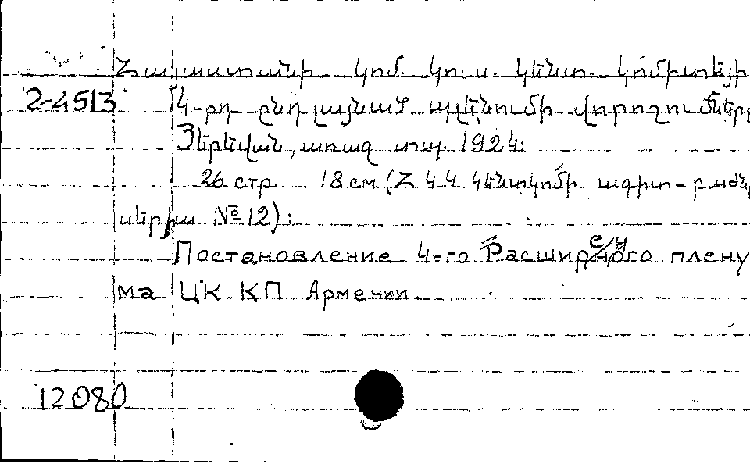 Հայաստանի կոմ. կուս. կենտ. կոմիտեյի
2-4513 4-րդ ընդլայնած պլենումի վորոշումները
Յերեվան, առաջ տպ 1924:
26 стр. 18 см (Հ Կ Կ Կենտկոմի ագիտ-բաժն
սերիա № 12):
Постановление 4-го Расширенного плену
ма ЦК КП Армении
12080